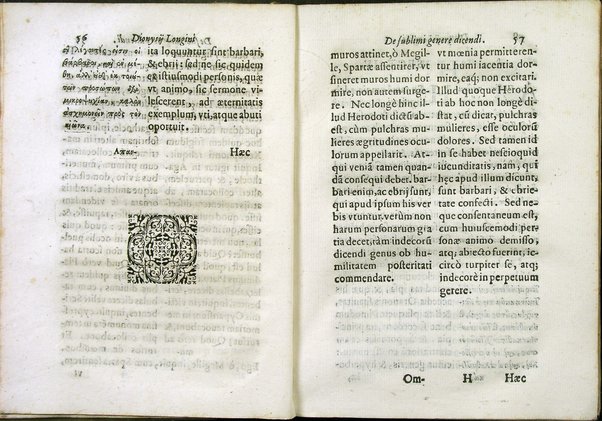 56 Dionysij Longini
ita loquuntur, sint barbari,
& ebrij: sed ne sic quidem
ex istiusmodi personis, quæ
vt animo, sic sermone vi-
lescerent, ad æternitatis
exemplum, vti, atque abuti
oportuit.
Hæc
De sublimi genere dicendi. 57
muros attinet, ò Megil-
le, Spartæ assentirer, vt
sineret muros humi dor
mire, non autem surge-
re. Nec longè hinc il-
lud Herodoti dictū ab-
est, cùm pulchras mu-
lieres ægritudines ocu-
lorum appellarit. At-
qui veniā tamen quan-
dā consequi debet. bar-
bari enim, ac ebrij sunt,
qui apud ipsum his ver
bis vtuntur. verùm non
harum personarum gra
tia decet, tàm indecorū
dicendi genus ob hu-
militatem posteritati
commendare.
Om-
vt mœnia permitteren-
tur humi iacentia dor-
mire, eaq; non excitari.
Illud quoque Herodo-
ti ab hoc non longè di-
stat, cū dicat, pulchras
mulieres, esse oculorū
dolores. Sed tamen id
in se habet nescioquid
iucunditatis, nam, qui
hęc apud illum dicunt,
sunt barbari, & ebrie-
tate confecti. Sed ne-
que consentaneum est,
cum huiuscemodi per-
sonæ animo demisso,
atq; abiecto fuerint, id-
circò turpiter se, atq;
indecorè in perpetuum
gerere.
H Hæc